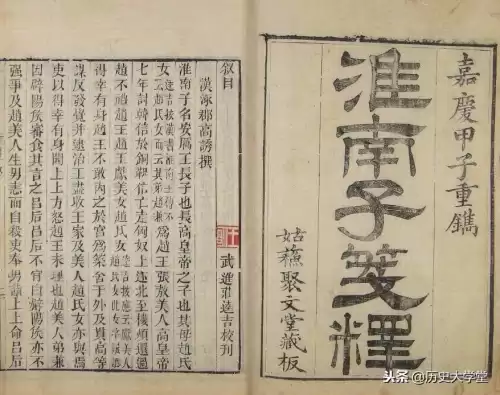 嘉慶甲子重鐫
淮南子箋釋
姑蘇聚文堂藏板
叙目
武進莊逵吉校刊
漢涿郡高誘撰
淮南子名安厲王長子也長高皇帝之子也其母趙氏
女為趙王張敖美人高皇帝
七年討韓信於銅鞮信亡走匈奴上遂北至樓煩還過
趙不禮趙王趙王獻美女趙氏女
得幸有身趙王不敢內之於宮為築舍于外及貫高等
謀反發覺并逮治王盡收王家及美人趙氏女亦與焉
吏以得幸有身聞上上方怒趙王未理也趙美人弟兼
因辟陽侯審食其言之呂后呂后不肯白辟陽侯亦不
强爭及趙美人生男恚而自殺吏奉男詣上上命呂后
头条 @历史大学堂